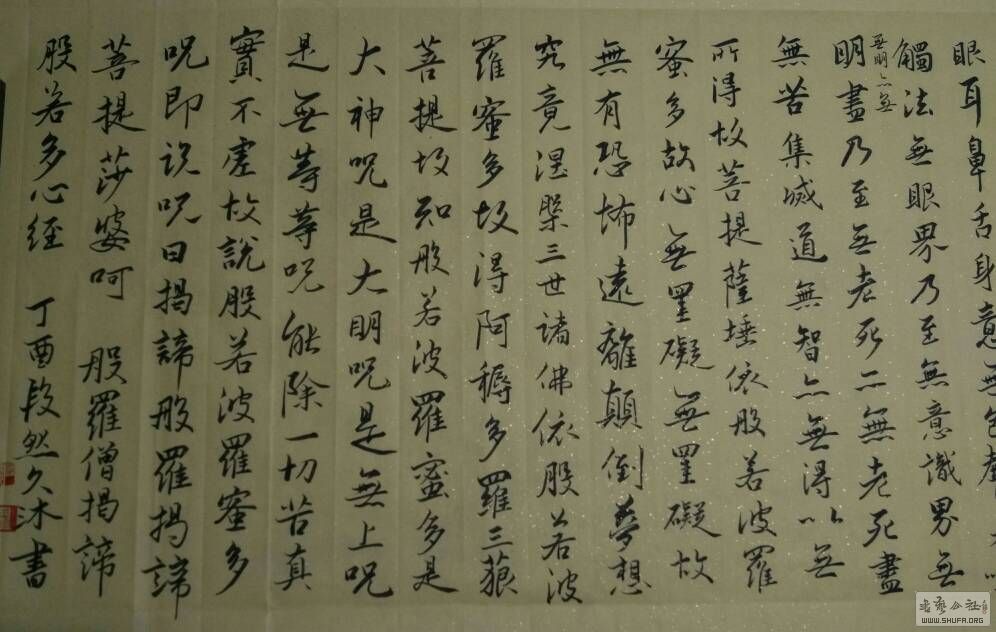 眼耳鼻舌身意无色聲
觸法無眼界乃至無意識界無
无明亦無
明盡乃至无老死亦無老死盡
無苦集滅道無智亦無得以無
所得故菩提薩埵依般若波羅
蜜多故心無罣礙無罣礙故
無有恐怖遠離顛倒夢想
究竟涅槃三世諸佛依般若波
羅蜜多故得阿耨多羅三藐
菩提故知般若波羅蜜多是
大神呪是大明呪是無上呪
是无等等呪能除一切苦真
實不虛故說般若波羅蜜多
呪即说呪曰揭諦般羅揭諦
菩提莎婆呵 般羅僧揭諦
般若多心経 丁酉段然久沐書
書藝公社
WWW.SHUFA.ORG